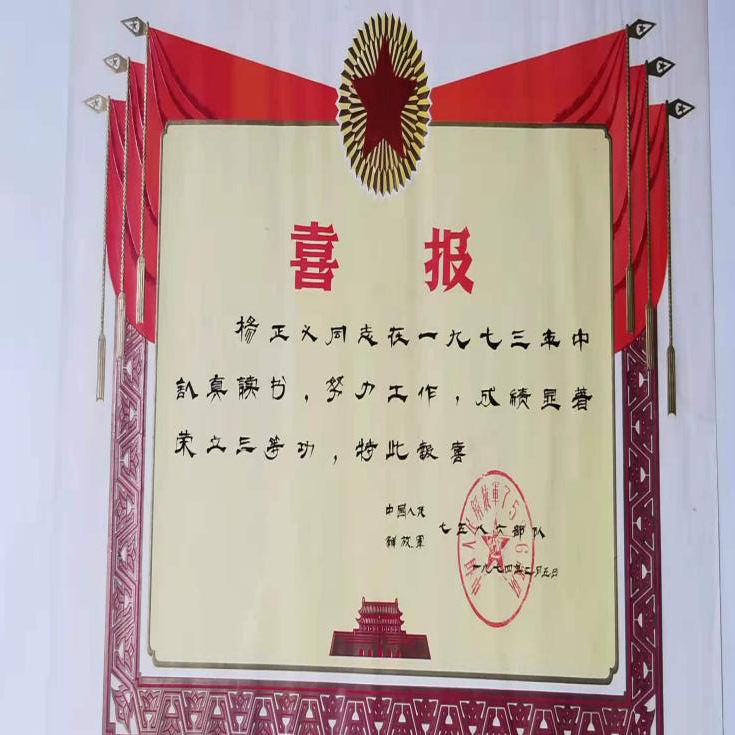 喜报
杨正义同志在一九七三年中
认真读书，努力工作，成绩显著
荣立三等功，特此报喜
中国人民
解放军 七五八六部队
一九七四年二月五日